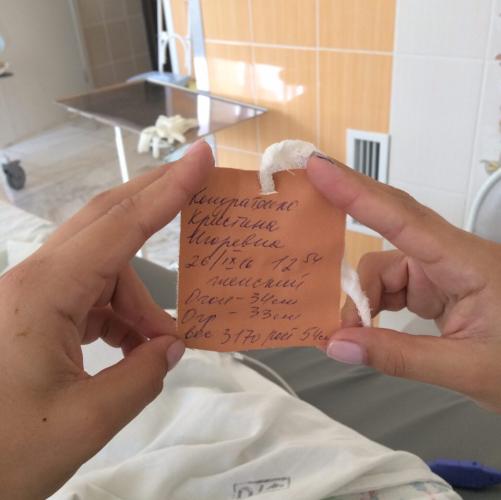 Кондратенко
Кристина
Игоревна
26/IX 16 12 54
женский
Огол - 34см
Огр - 33см
вес 3170 рост 54см